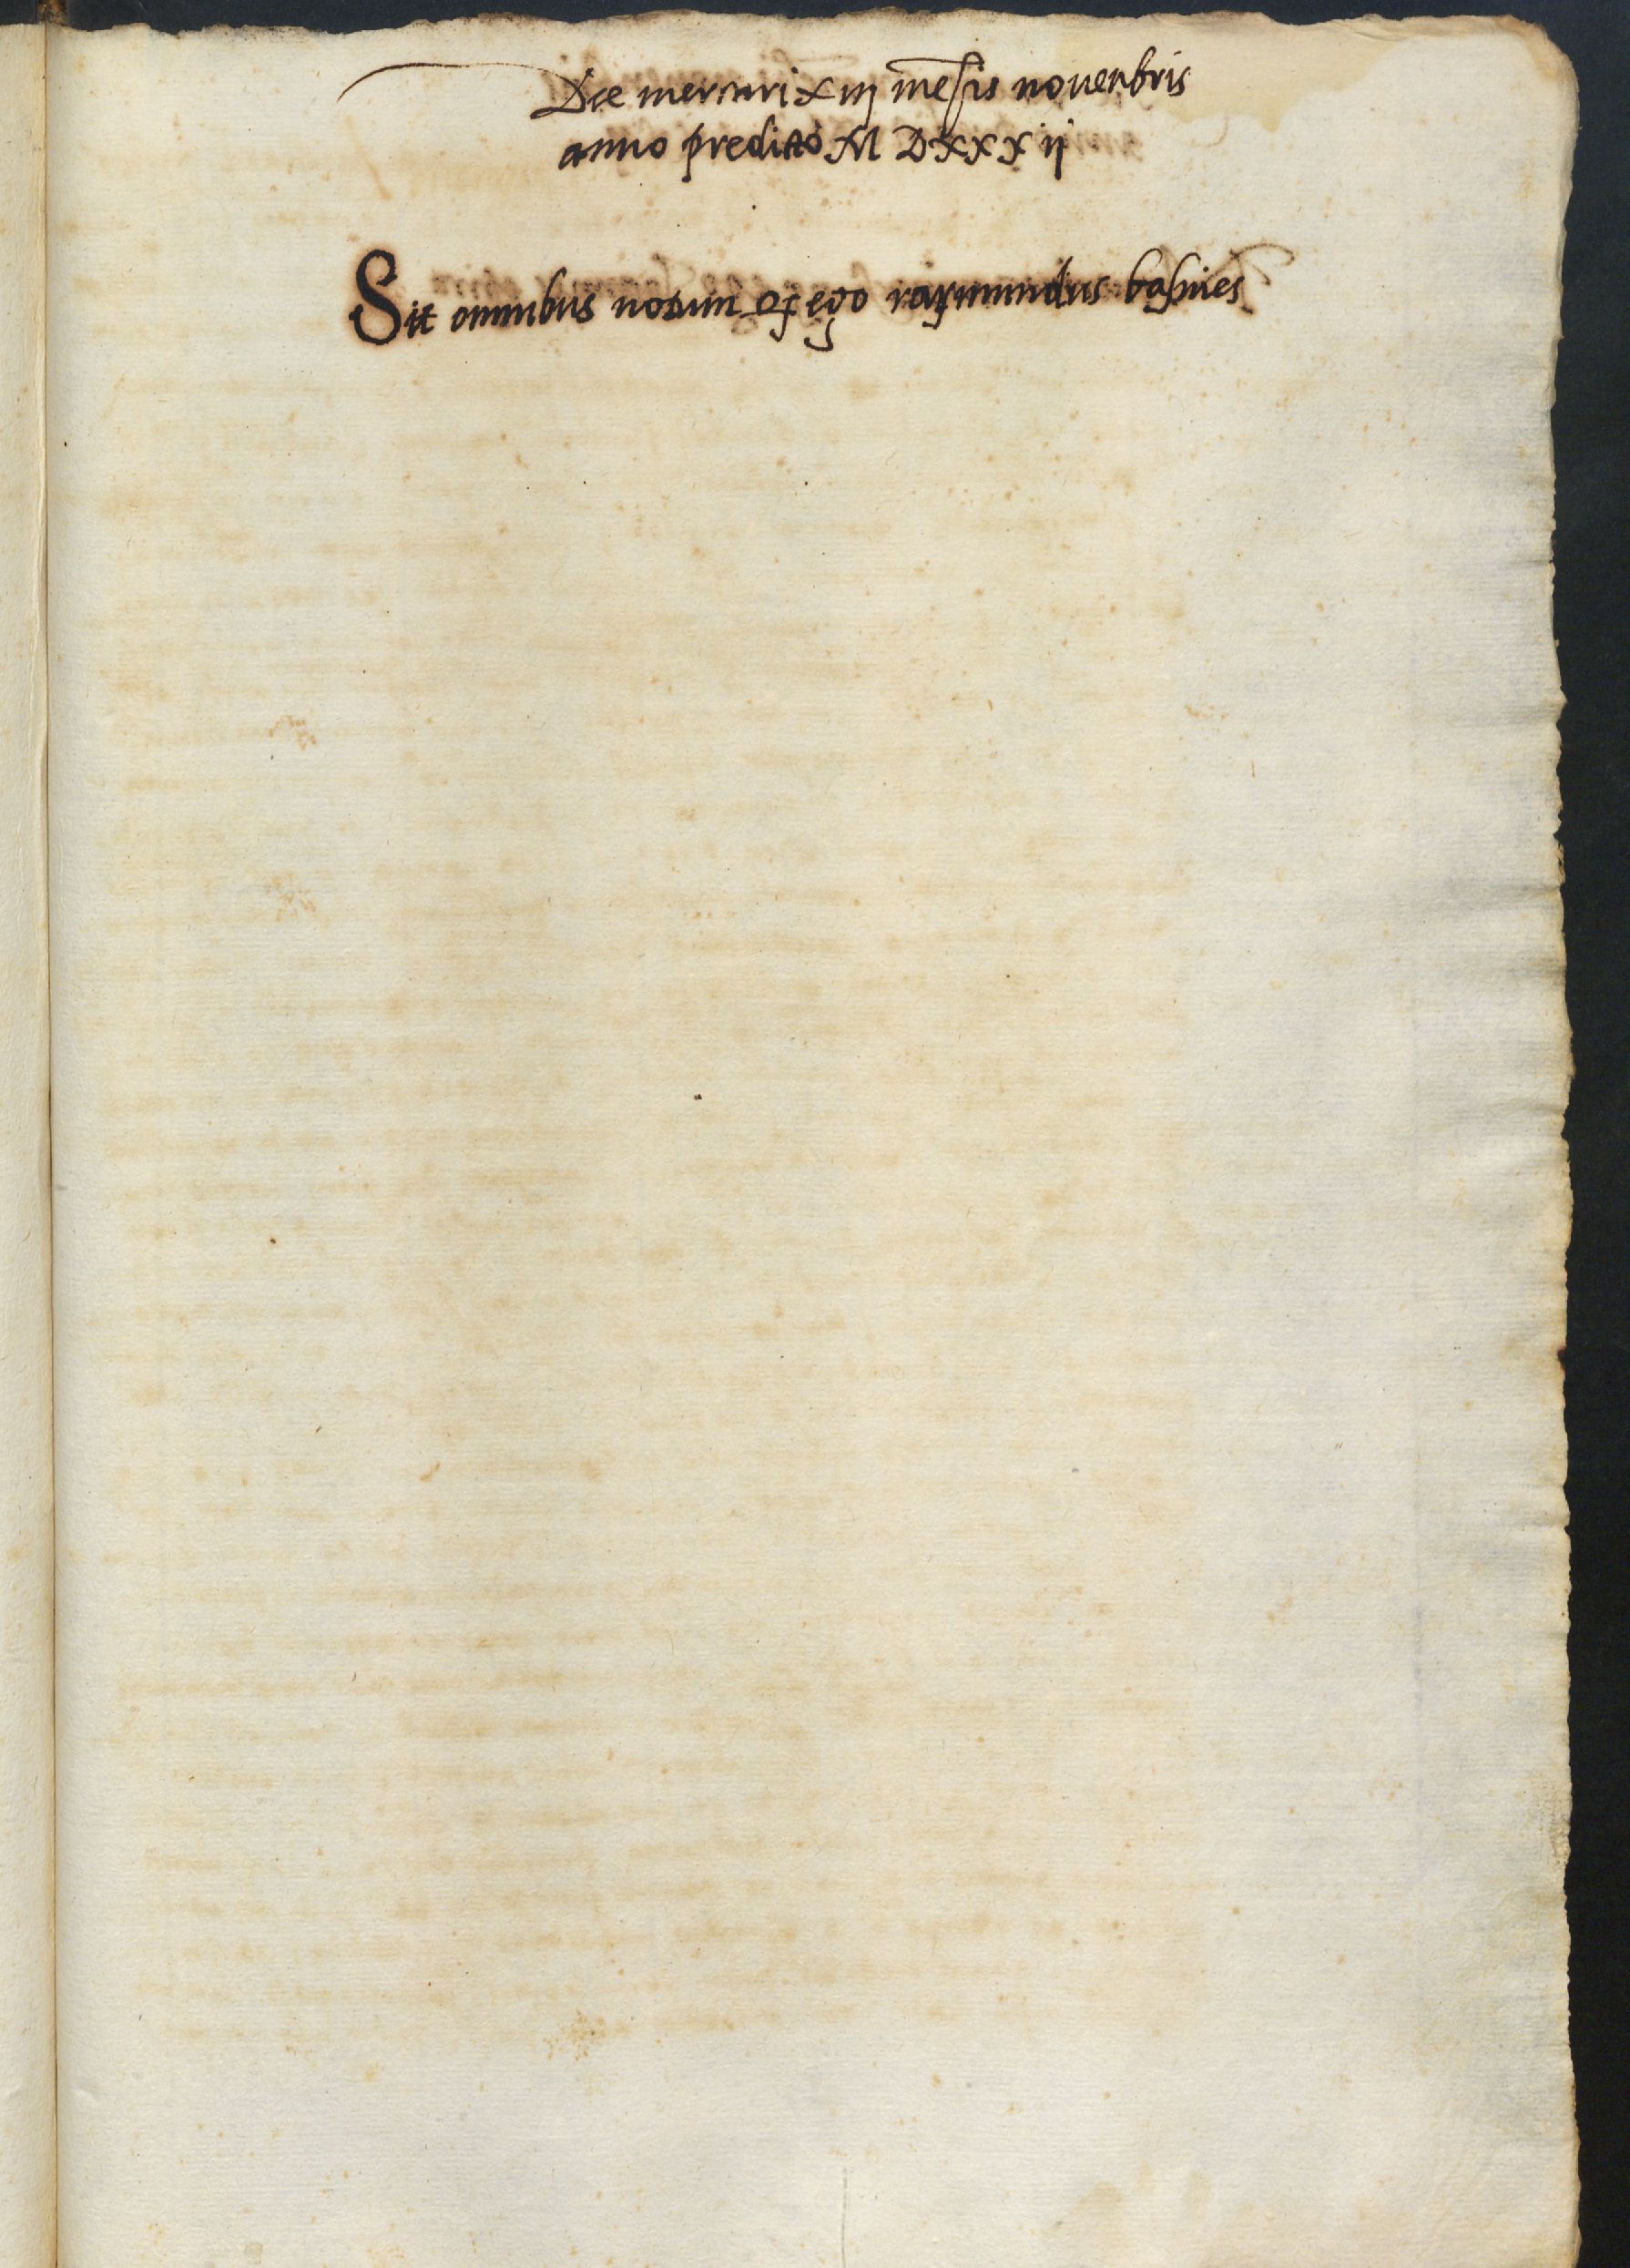 Die mercuri xiij mesis nouenbris
anno predicto M DXXX ij
Sit omnibus notum q ego raymundus